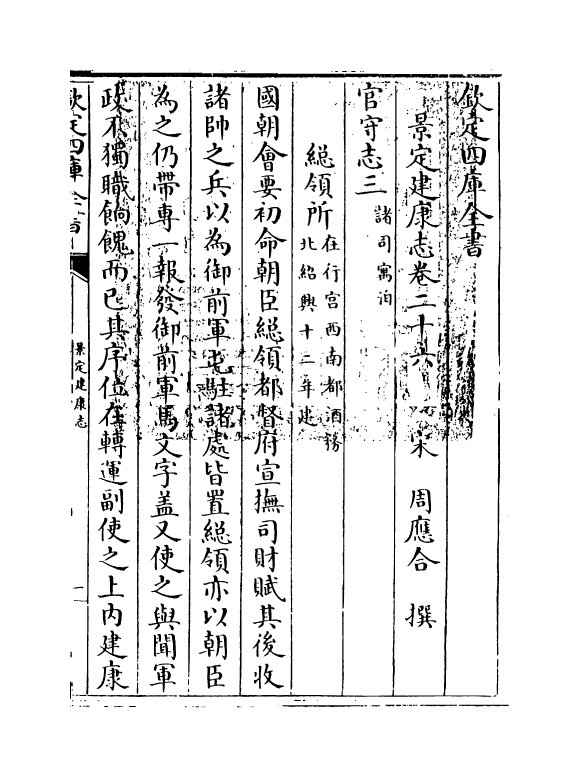 欽定四庫全書
景定建康志卷二十六　宋　周應合　撰
官守志三
諸司寓治
總領所
在行宫西南都酒務
北紹興十二年建
國朝會要初命朝臣総領都督府宣撫司財賦其後收
諸帥之兵以為御前軍屯駐諸處皆置総領亦以朝臣
為之仍帶專一報發御前軍馬文字盖又使之與聞軍
政不獨職餉餽而已其序位在轉運副使之上内建康
欽定四庫全書
景定建康志
一